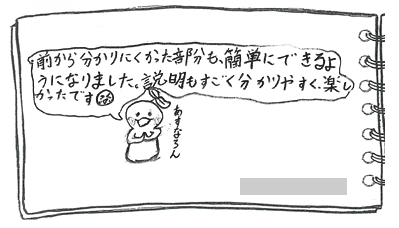 前から分かりにくかった部分も、簡単にできるよ
うになりました。説明もすごく分かりやすく、楽し
かったです
あすなろん